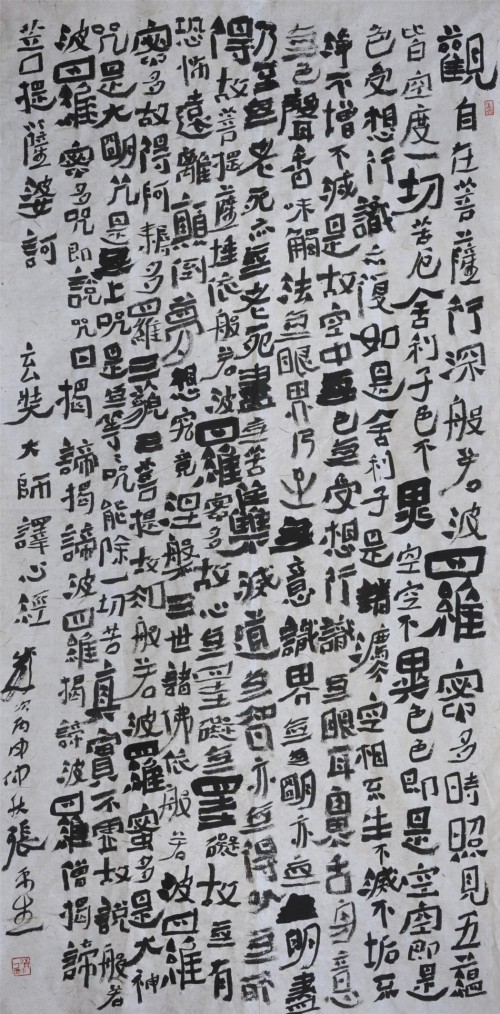 觀自在菩薩行深般若波羅密多時照見五蘊
皆空度一切苦厄舍利子色不異空空不異色色即是空空即是
色受想行識亦復如是舍利子是諸灋空相不生不滅不垢不
淨不增不減是故空中無色無受想行識無眼耳鼻舌身意
無色聲香味觸法無眼界乃至無意識界無無明亦無無明盡
乃至無老死亦無老死盡無苦集滅道無智亦無得以無所
得故菩提薩埵依般若波羅密多故心無罣礙無罣礙故無有
恐怖遠離顛倒夢想究竟涅槃三世諸佛依般若波羅
密多故得阿耨多羅三藐三菩提故知般若波羅蜜多是大神
咒是大明咒是無上咒是無等々咒能除一切苦真實不虛故說般若
波羅密多咒即說咒曰揭諦揭諦波羅揭諦波羅僧揭諦
菩提薩婆訶 玄奘大師譯心經 歲次丙申仲秋張